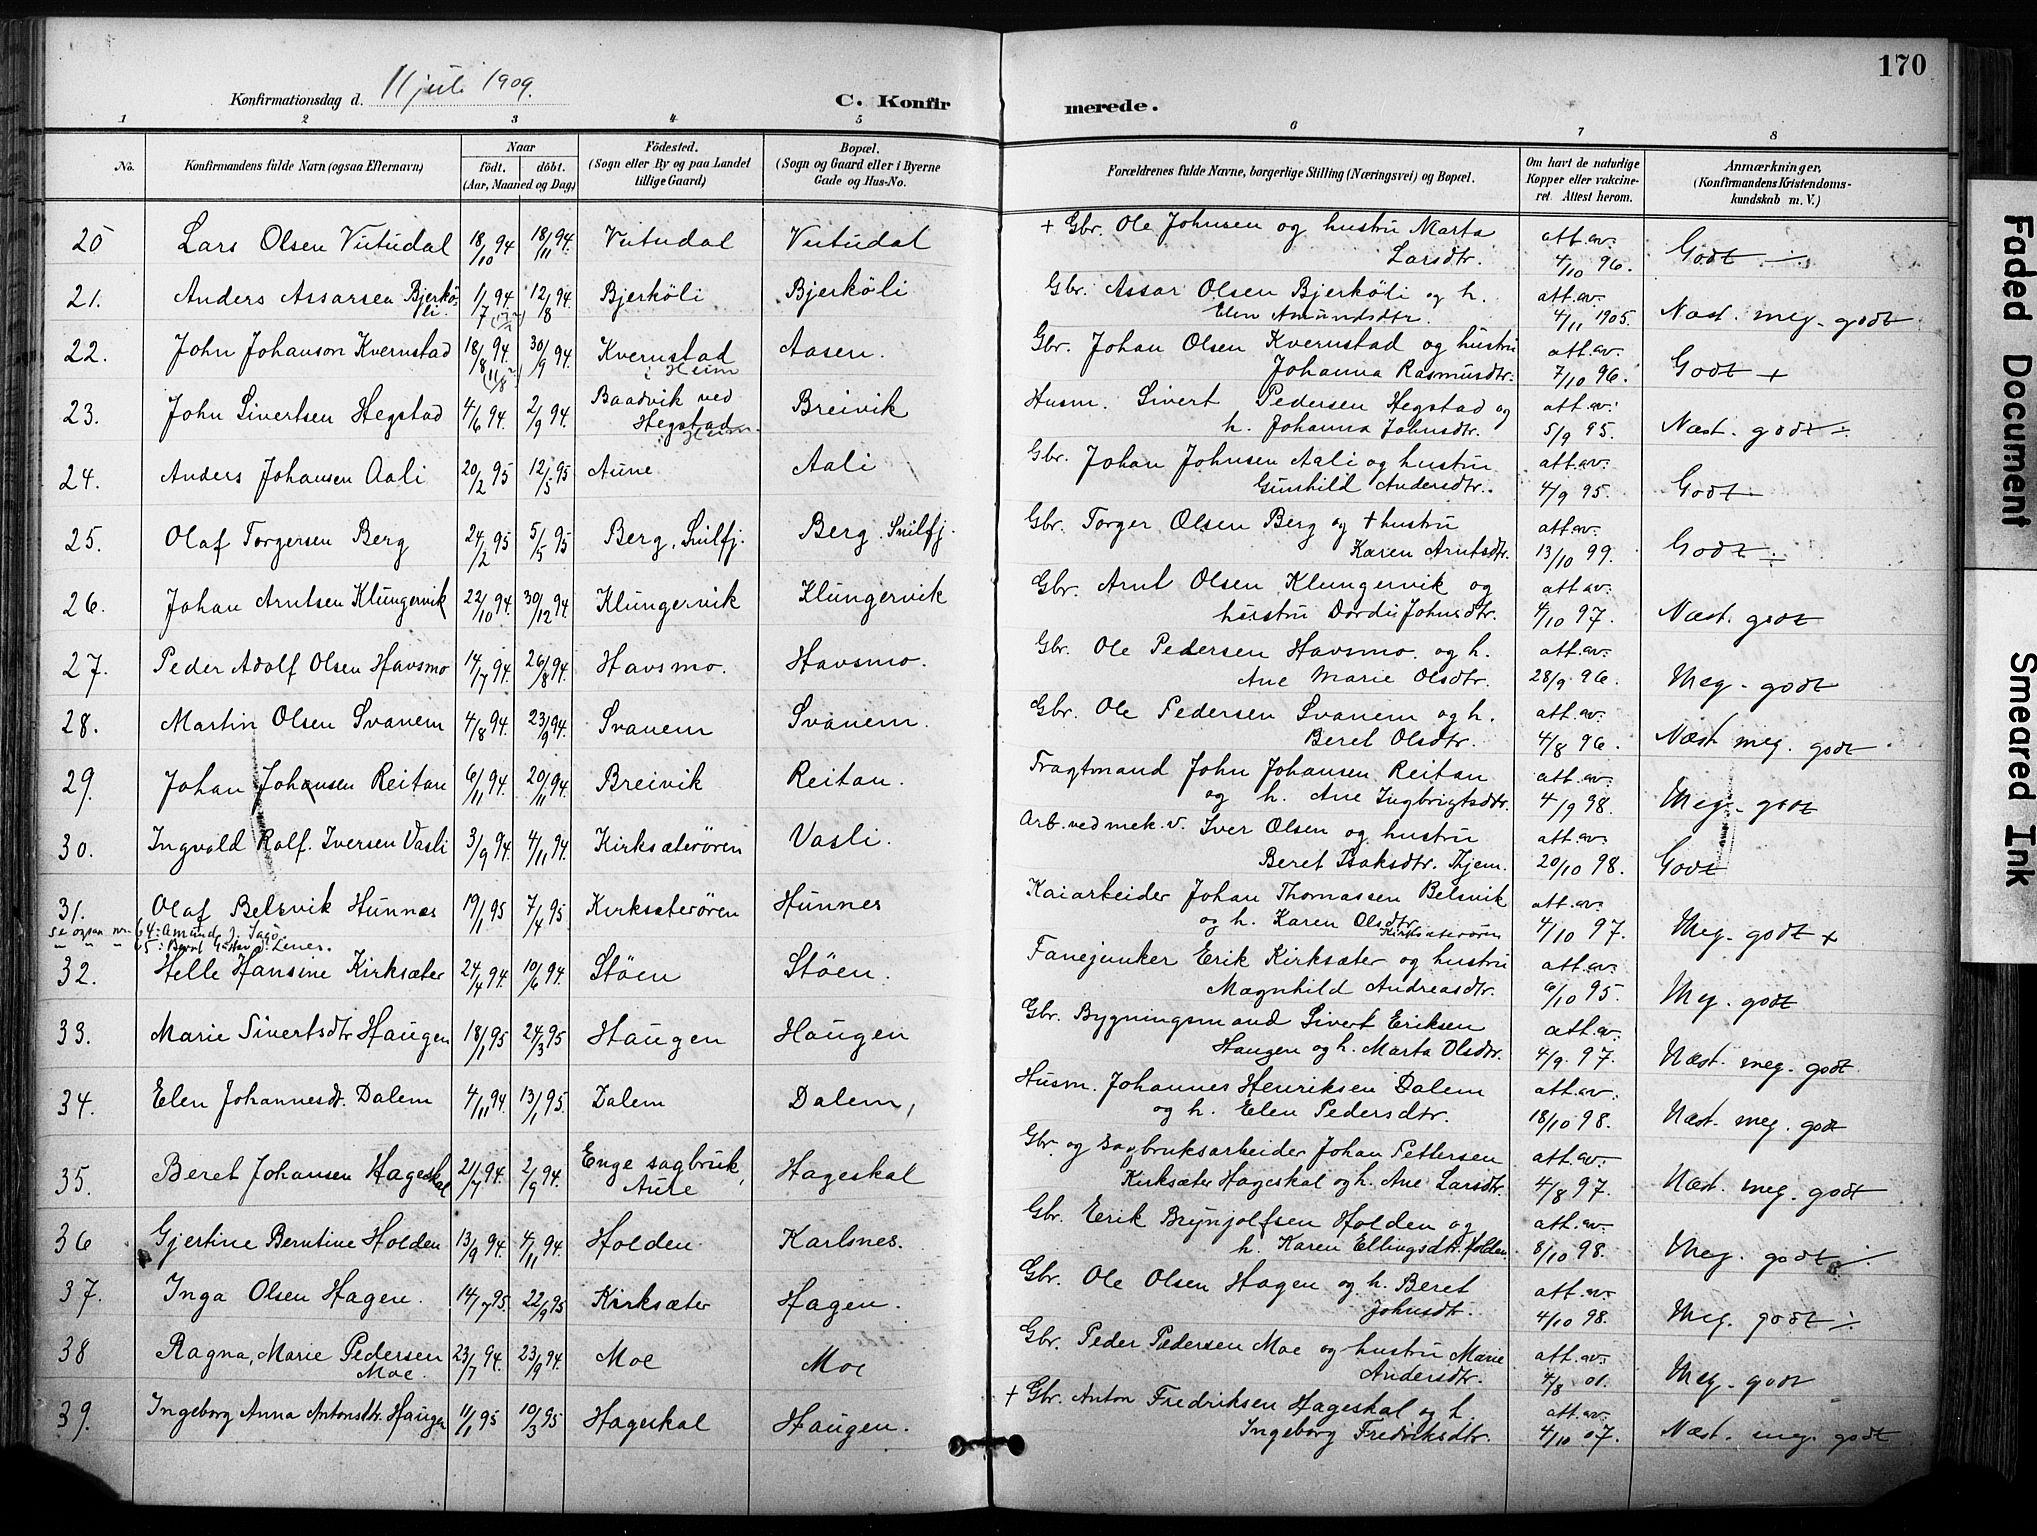 170
Konfirmationsdag d. 11 juli 1909.
C. Konfirmerede.
1 2 3 4 5 6 7 8
No.
Konfirmandens fulde Navn (ogsaa Efternavn)
Naar
födt. döbt.
(Aar, Maaned og Dag)
Födested.
(Sogn eller By og paa Landet
tillige Gaard)
Bopæl.
(Sogn og Gaard eller i Byerne
Gade og Hus-No.
Forældrenes fulde Navne, borgerlige Stilling (Næringsvei) og Bopæl.
Om havt de naturlige
Kopper eller vakcine-
ret. Attest herom.
Anmærkninger.
(Konfirmandens Kristendoms-
kundskab m. V.)
20 Lars Olsen Vutudal 18/10 94 18/11 94. Vutudal Vutudal + Gbr. Ole Johnsen og hustru Marta att. av.
Larsdtr. 4/10 96. Godt ÷
21. Anders Assarsen Bjerkö- 1/7 94 12/8 94. Bjerköli Bjerköli Gbr. Assar Olsen Bjerköli og h. att. av.
li. Elen Amundsdtr. 4/11 1905. Næst. meg. godt
22. John Johanson Kvernstad 18/8 94. 30/9 94. Kvernstad Aasen. Gbr. Johan Olsen Kvernstad og hustru att. av.
i Heim Johanna Rasmusdtr. 7/10 96. Godt +
23. John Sivertsen Hegstad 4/6 94. 2/9 94. Baadvik ved Breivik Husm. Sivert Pedersen Hegstad og att. av.
Hegstad Heim. h. Johanna Johnsdtr. 5/9 95. Næst. godt ÷
24. Anders Johansen Aali 20/2 95 12/5 95 Aune Aali Gbr. Johan Johnsen Aali og hustru att. av.
Gunhild Andersdtr. 4/9 95. Godt
25. Olaf Torgersen Berg 24/2 95 5/5 95 Berg, Snilfj. Berg. Snilfj. Gbr. Torger Olsen Berg og + hustru att. av.
Karen Arntsdtr. 13/10 99. Godt ÷
26. Johan Arntsen Klungervik 22/10 94. 30/12 94. Klungervik Klungervik Gbr. Arnt Olsen Klungervik og att av.
hustru Dordi Johnsdtr. 4/10 97. Næst. godt
27. Peder Adolf Olsen Havsmo 14/7 94. 26/8 94. Havsmo. Havsmo. Gbr. Ole Pedersen Havsmo. og h. att. av.
Ane Marie Olsdtr. 28/9 96. Meg. godt
28. Martin Olsen Svanem 4/8 94. 23/9 94. Svanem Svanem. Gbr. Ole Pedersen Svanem og h. att. av.
Beret Olsdtr. 4/8 96. Næst. meg. godt
29. Johan Johansen Reitan 6/11 94. 20/11 94. Breivik Reitan. Fragtmand John Johansen Reitan att. av.
og h. Ane Ingbrigtsdtr. 4/9 98. Meg. godt
30. Ingvald Rolf. Iversen Vasli 3/9 94. 4/11 94. Kirksæterören Vasli. Arb. ved mek. v. Iver Olsen og hustru att. av.
Beret Isaksdtr. Hjem. 20/10 98. Godt
31. Olaf Belsvik Hunnes 19/1 95 7/4 95 Kirksæterören Hunnes Kaiarbeider Johan Thomassen Belsvik att. av.
og h. Karen Olsdtr. Kirksæterören 4/10 97. Meg. godt +
se ogsaa nr. 64: Amund J. Sagö.
" " " 65: Bernt Gustav Lenes.
32. Helle Hansine Kirksæter 24/4 94. 10/6 94. Stöen Stöen. Fanejunker Erik Kirksæter og hustru att. av.
Magnhild Andreasdtr. 6/10 95. Meg. godt
33. Marie Sivertsdtr Haugen 18/1 95 24/3 95 Haugen Haugen Gbr. Bygningsmand Sivert Eriksen att. av.
Haugen og h. Marta Olsdtr. 4/9 97. Næst. meg. godt.
34. Elen Johannesdt. Dalem 4/11 94. 13/1 95. Dalem Dalem, Husm. Johannes Henriksen Dalem att. av.
og h. Elen Pedersdtr. 18/10 98. Næst. meg. godt
35. Beret Johansen Hageskal 21/7 94. 2/9 94. Enge sagbruk, Hageskal Gbr. og sagbruksarbeider Johan Pettersen att. av.
Aure Kirksæter Hageskal og h. Ane Larsdtr. 4/8 97. Næst. meg. godt
36 Gjertine Berntine Holden 13/9 94. 4/11 94. Holden Karlsnes. Gbr. Erik Brynjolfsen Holden og att. av.
h. Karen Ellingsdtr. Holden. 8/10 98. Meg. godt ÷
37. Inga Olsen Hagen. 14/7 95. 22/9 95 Kirksæter Hagen. Gbr. Ole Olsen Hagen og h. Beret att. av.
Johnsdtr. 4/10 98. Meg. godt ÷
38 Ragna, Marie Pedersen 23/7 94. 23/9 94. Moe Moe Gbr. Peder Pedersen Moe og hustru Marie att. av.
Moe. Andersdtr. 4/8 01. Meg. godt
39. Ingeborg Anna Antonsdtr. Haugen 11/1 95 10/3 95 Hageskal Haugen. + Gbr. Anton Fredriksen Hageskal og h. att. av.
Ingeborg Fredriksdtr. 4/10 07. Næst. meg. godt
Faded Document
Smeared Ink